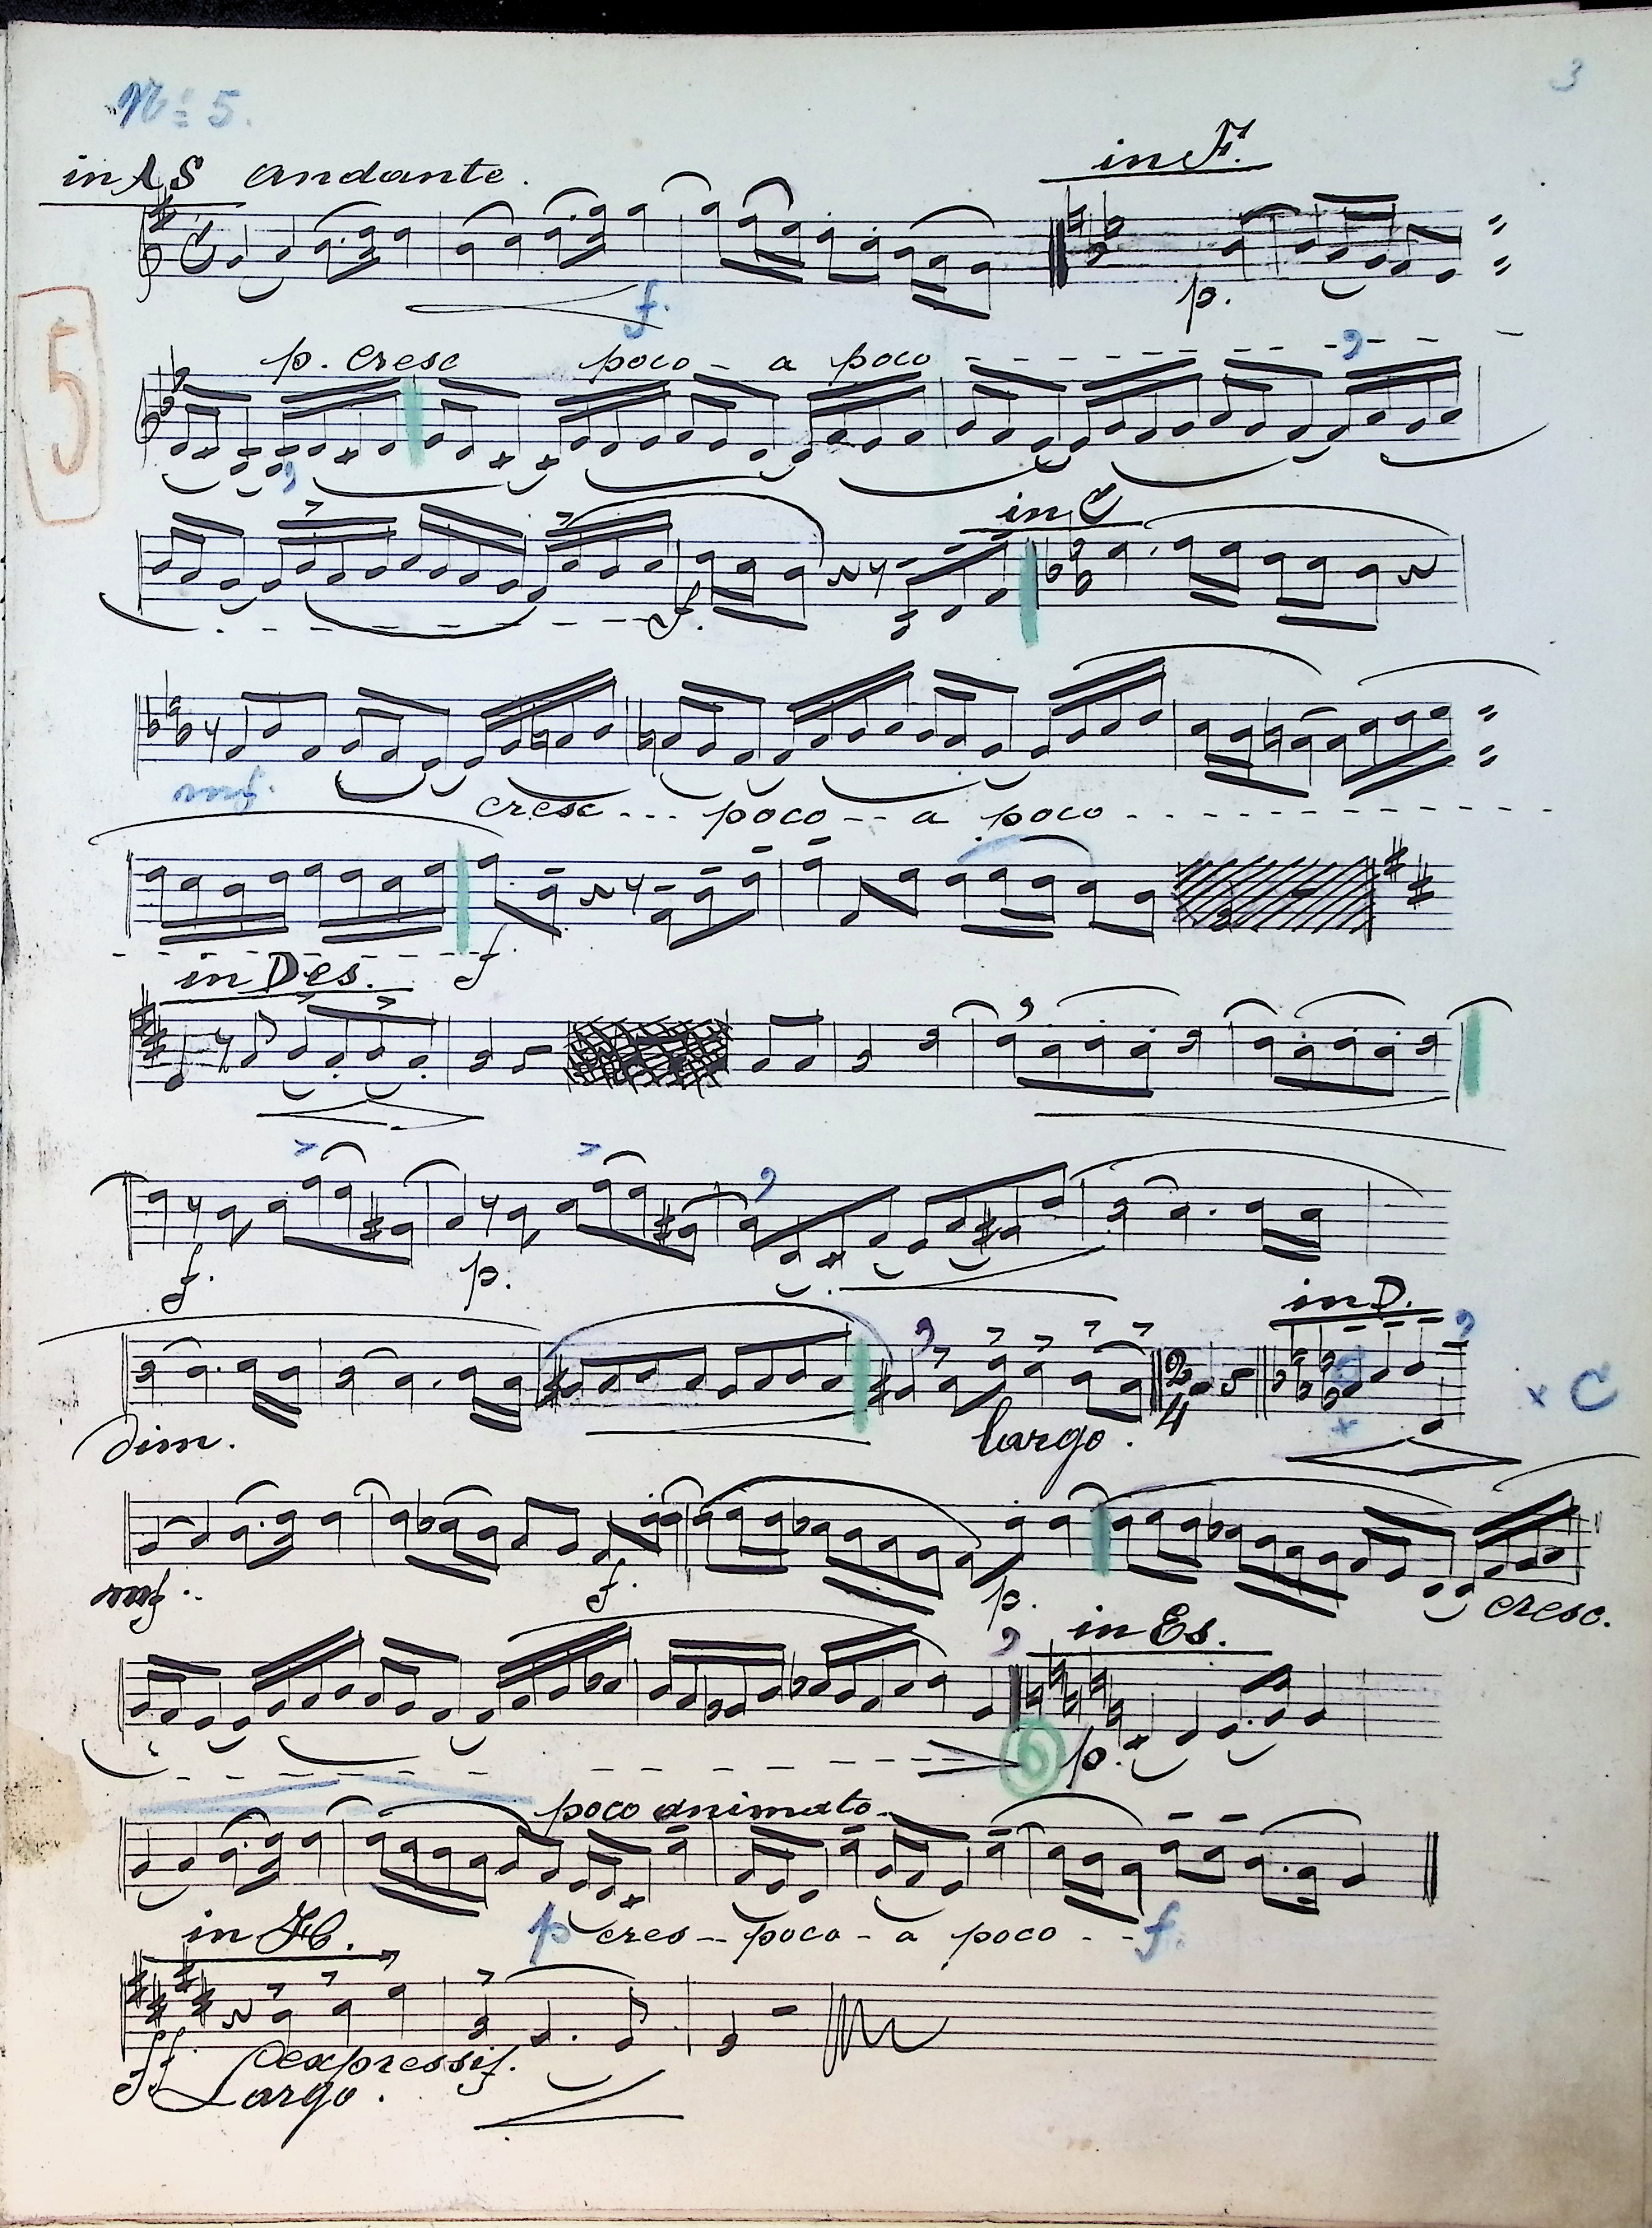 Nº 5.
3
in AS andante.
in F.
f.
p.
5
p. cresc poco - a poco
in C
f.
mf.
cresc --- poco -- a poco
in Des.
f
f.
p.
in D.
Dim.
largo.
2/4
x C
mf.
f.
p.
cresc.
in Es.
6
p.
poco animato.
p cres -- poco - a poco - - f.
in H.
ff
expressif.
Largo.